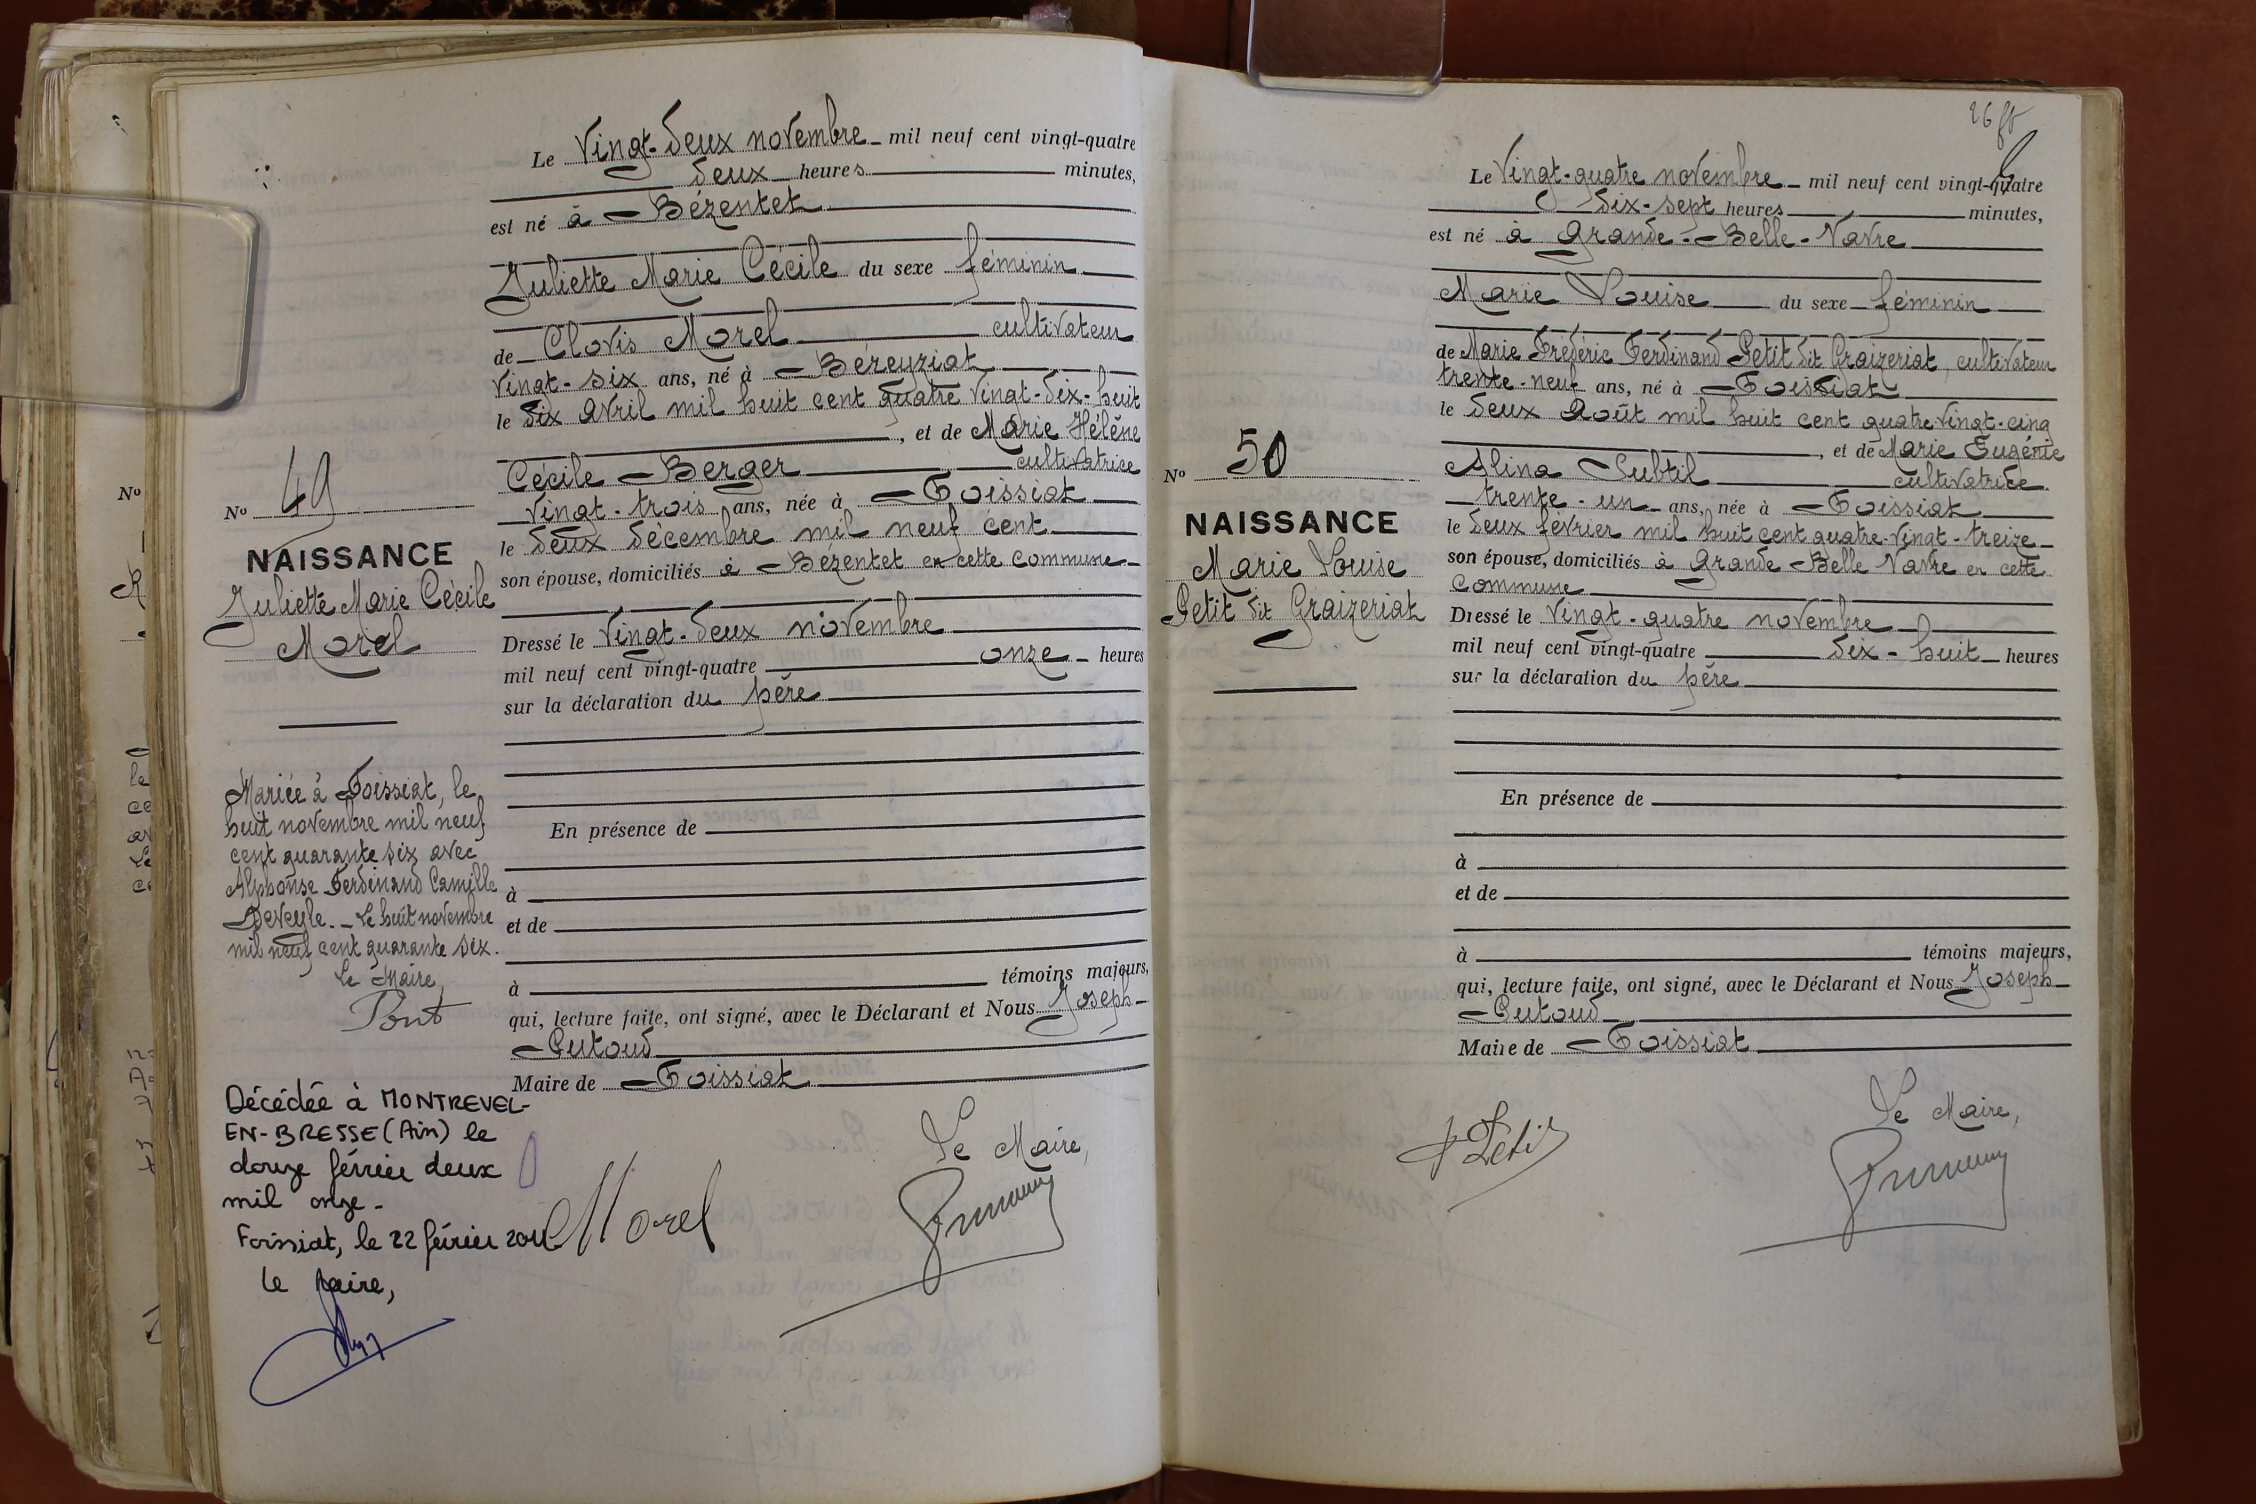 Le Vingt-deux novembre mil neuf cent vingt-quatre
deux heures minutes,
est né à Bézentet
Juliette Marie Cécile du sexe féminin
de Clovis Morel cultivateur
vingt-six ans, né à Béreyziat
le six avril mil huit cent quatre vingt-dix-huit
, et de Marie Hélène
Cécile Berger cultivatrice
vingt-trois ans, née à Foissiat
le deux décembre mil neuf cent
son épouse, domiciliés à Bézentet en cette commune
Dressé le vingt-deux novembre
mil neuf cent vingt-quatre onze heures
sur la déclaration du père
En présence de
à
et de
à témoins majeurs,
qui, lecture faite, ont signé, avec le Déclarant et Nous Joseph
Putoud
Maire de Foissiat
Le Maire,
Morel
No 49
NAISSANCE
Juliette Marie Cécile
Morel
Mariée à Foissiat, le
huit novembre mil neuf
cent quarante six avec
Alphonse Ferdinand Camille
Deveyle. _ Le huit novembre
mil neuf cent quarante six.
Le Maire,
Pont
Décédée à MONTREVEL-
EN-BRESSE (Ain) le
douze février deux
mil onze -
Foissiat, le 22 février 2011
Le Maire,
No
26
Le Vingt-quatre novembre mil neuf cent vingt-quatre
dix-sept heures minutes,
est né à Grande-Belle-Navre
Marie Louise du sexe féminin
de Marie Frédéric Ferdinand Petit dit Graizeriat, cultivateur
trente-neuf ans, né à Foissiat
le deux Août mil huit cent quatre-vingt-cinq
, et de Marie Eugénie
Alina Subtil cultivatrice
trente-un ans, née à Foissiat
le deux février mil huit cent quatre-vingt-treize
son épouse, domiciliés à Grande Belle Navre en cette
commune
Dressé le vingt-quatre novembre
mil neuf cent vingt-quatre dix-huit heures
sur la déclaration du père
En présence de
à
et de
à témoins majeurs,
qui, lecture faite, ont signé, avec le Déclarant et Nous Joseph
Putoud
Maire de Foissiat
Petit
Le Maire,
No 50
NAISSANCE
Marie Louise
Petit dit Graizeriat